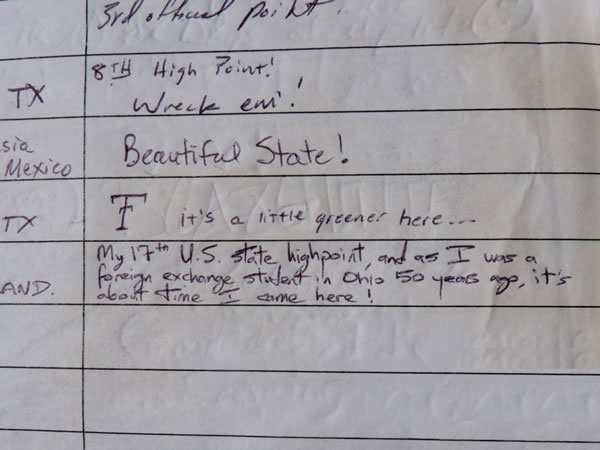 3rd official point.
TX
8TH High Point!
Wreck em'!
sia
Mexico
Beautiful State!
TX
it's a little greener here...
AND.
My 17th U.S. state highpoint, and as I was a
foreign exchange student in Ohio 50 years ago, it's
about time I came here!